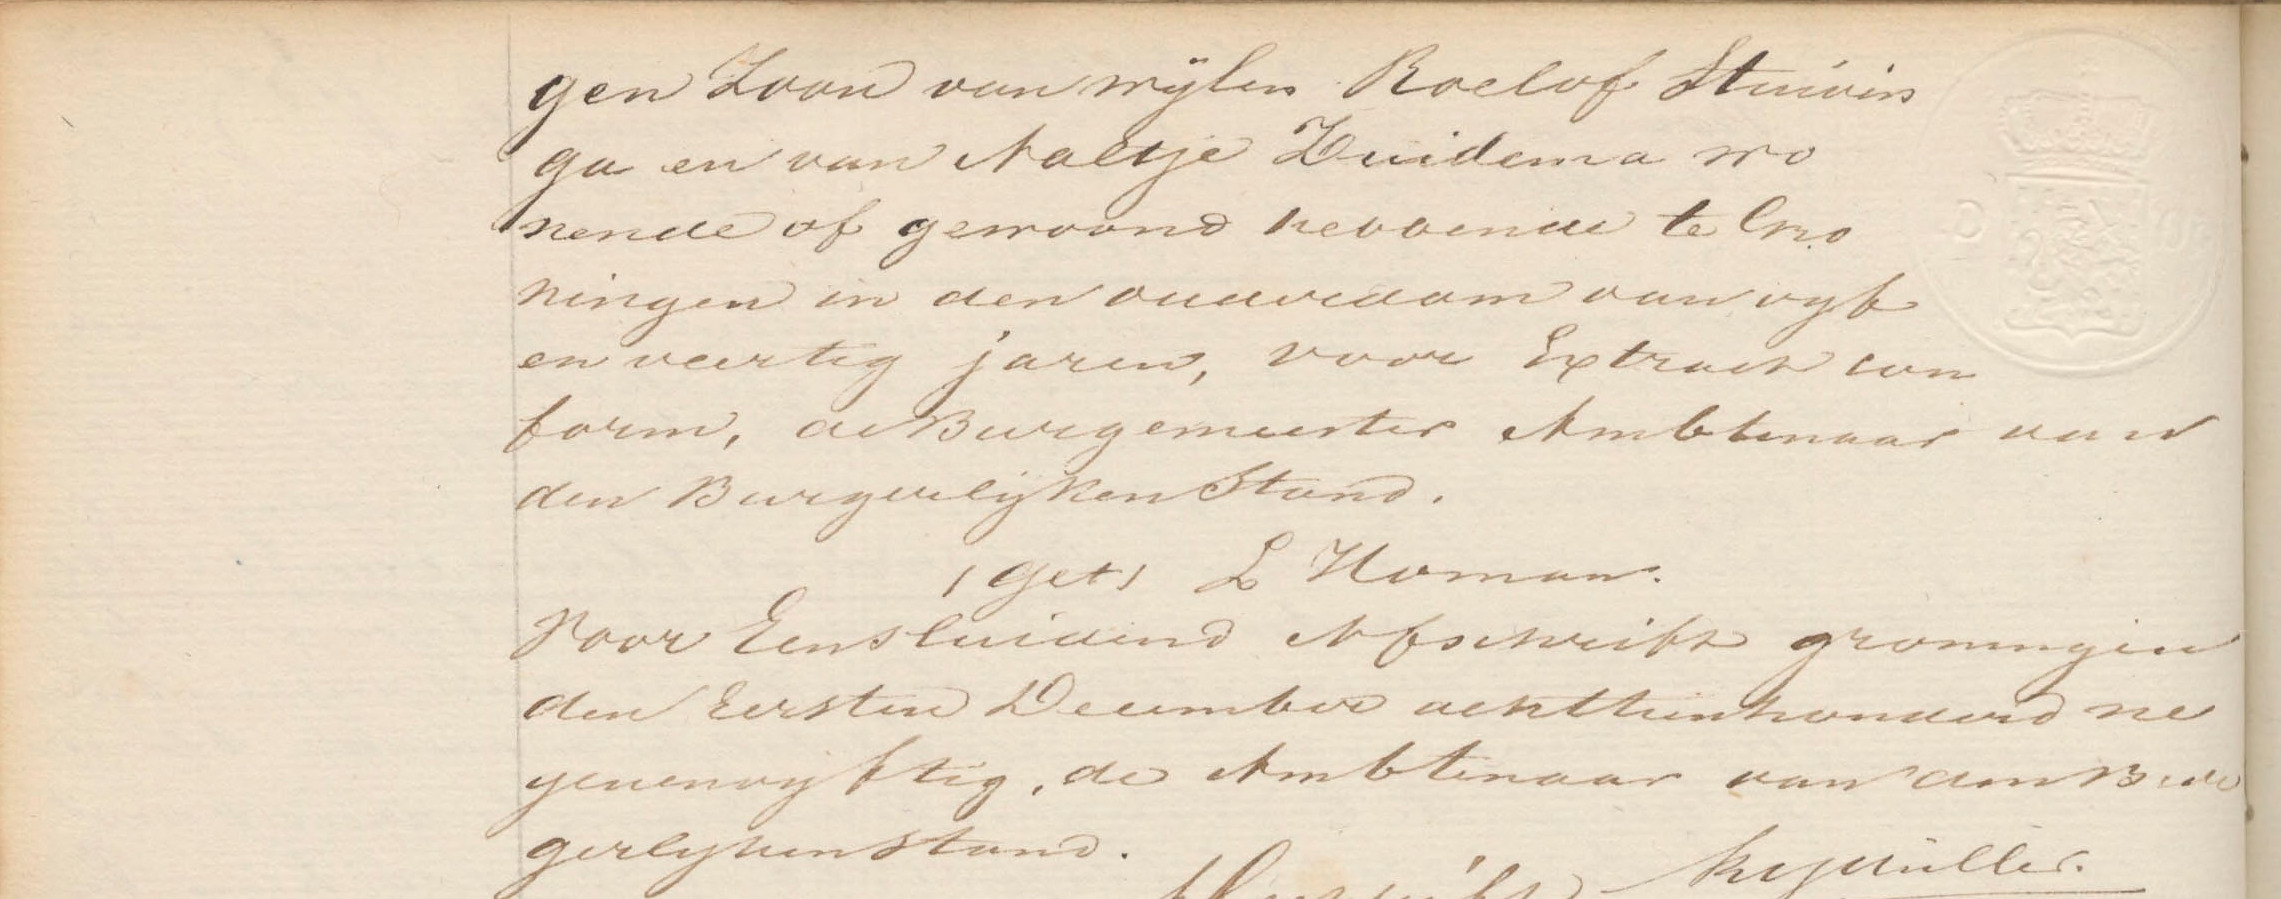 gen Zoon van wijlen Roelof Stuivin
ga en van Aaltje Zuidema wo
nende of gewoond hebbende te Gro
ningen in den ouderdom van vyf
en veertig jaren, voor Extract con
form, de Burgemeester Ambtenaar van
den Burgerlijken Stand.
(get) L Homan.
Voor Eensluidend Afschrift groningen
den Eersten December achttienhonderd ne
genenvyftig, de Ambtenaar van den Bur
gerlyken Stand.
Müller.